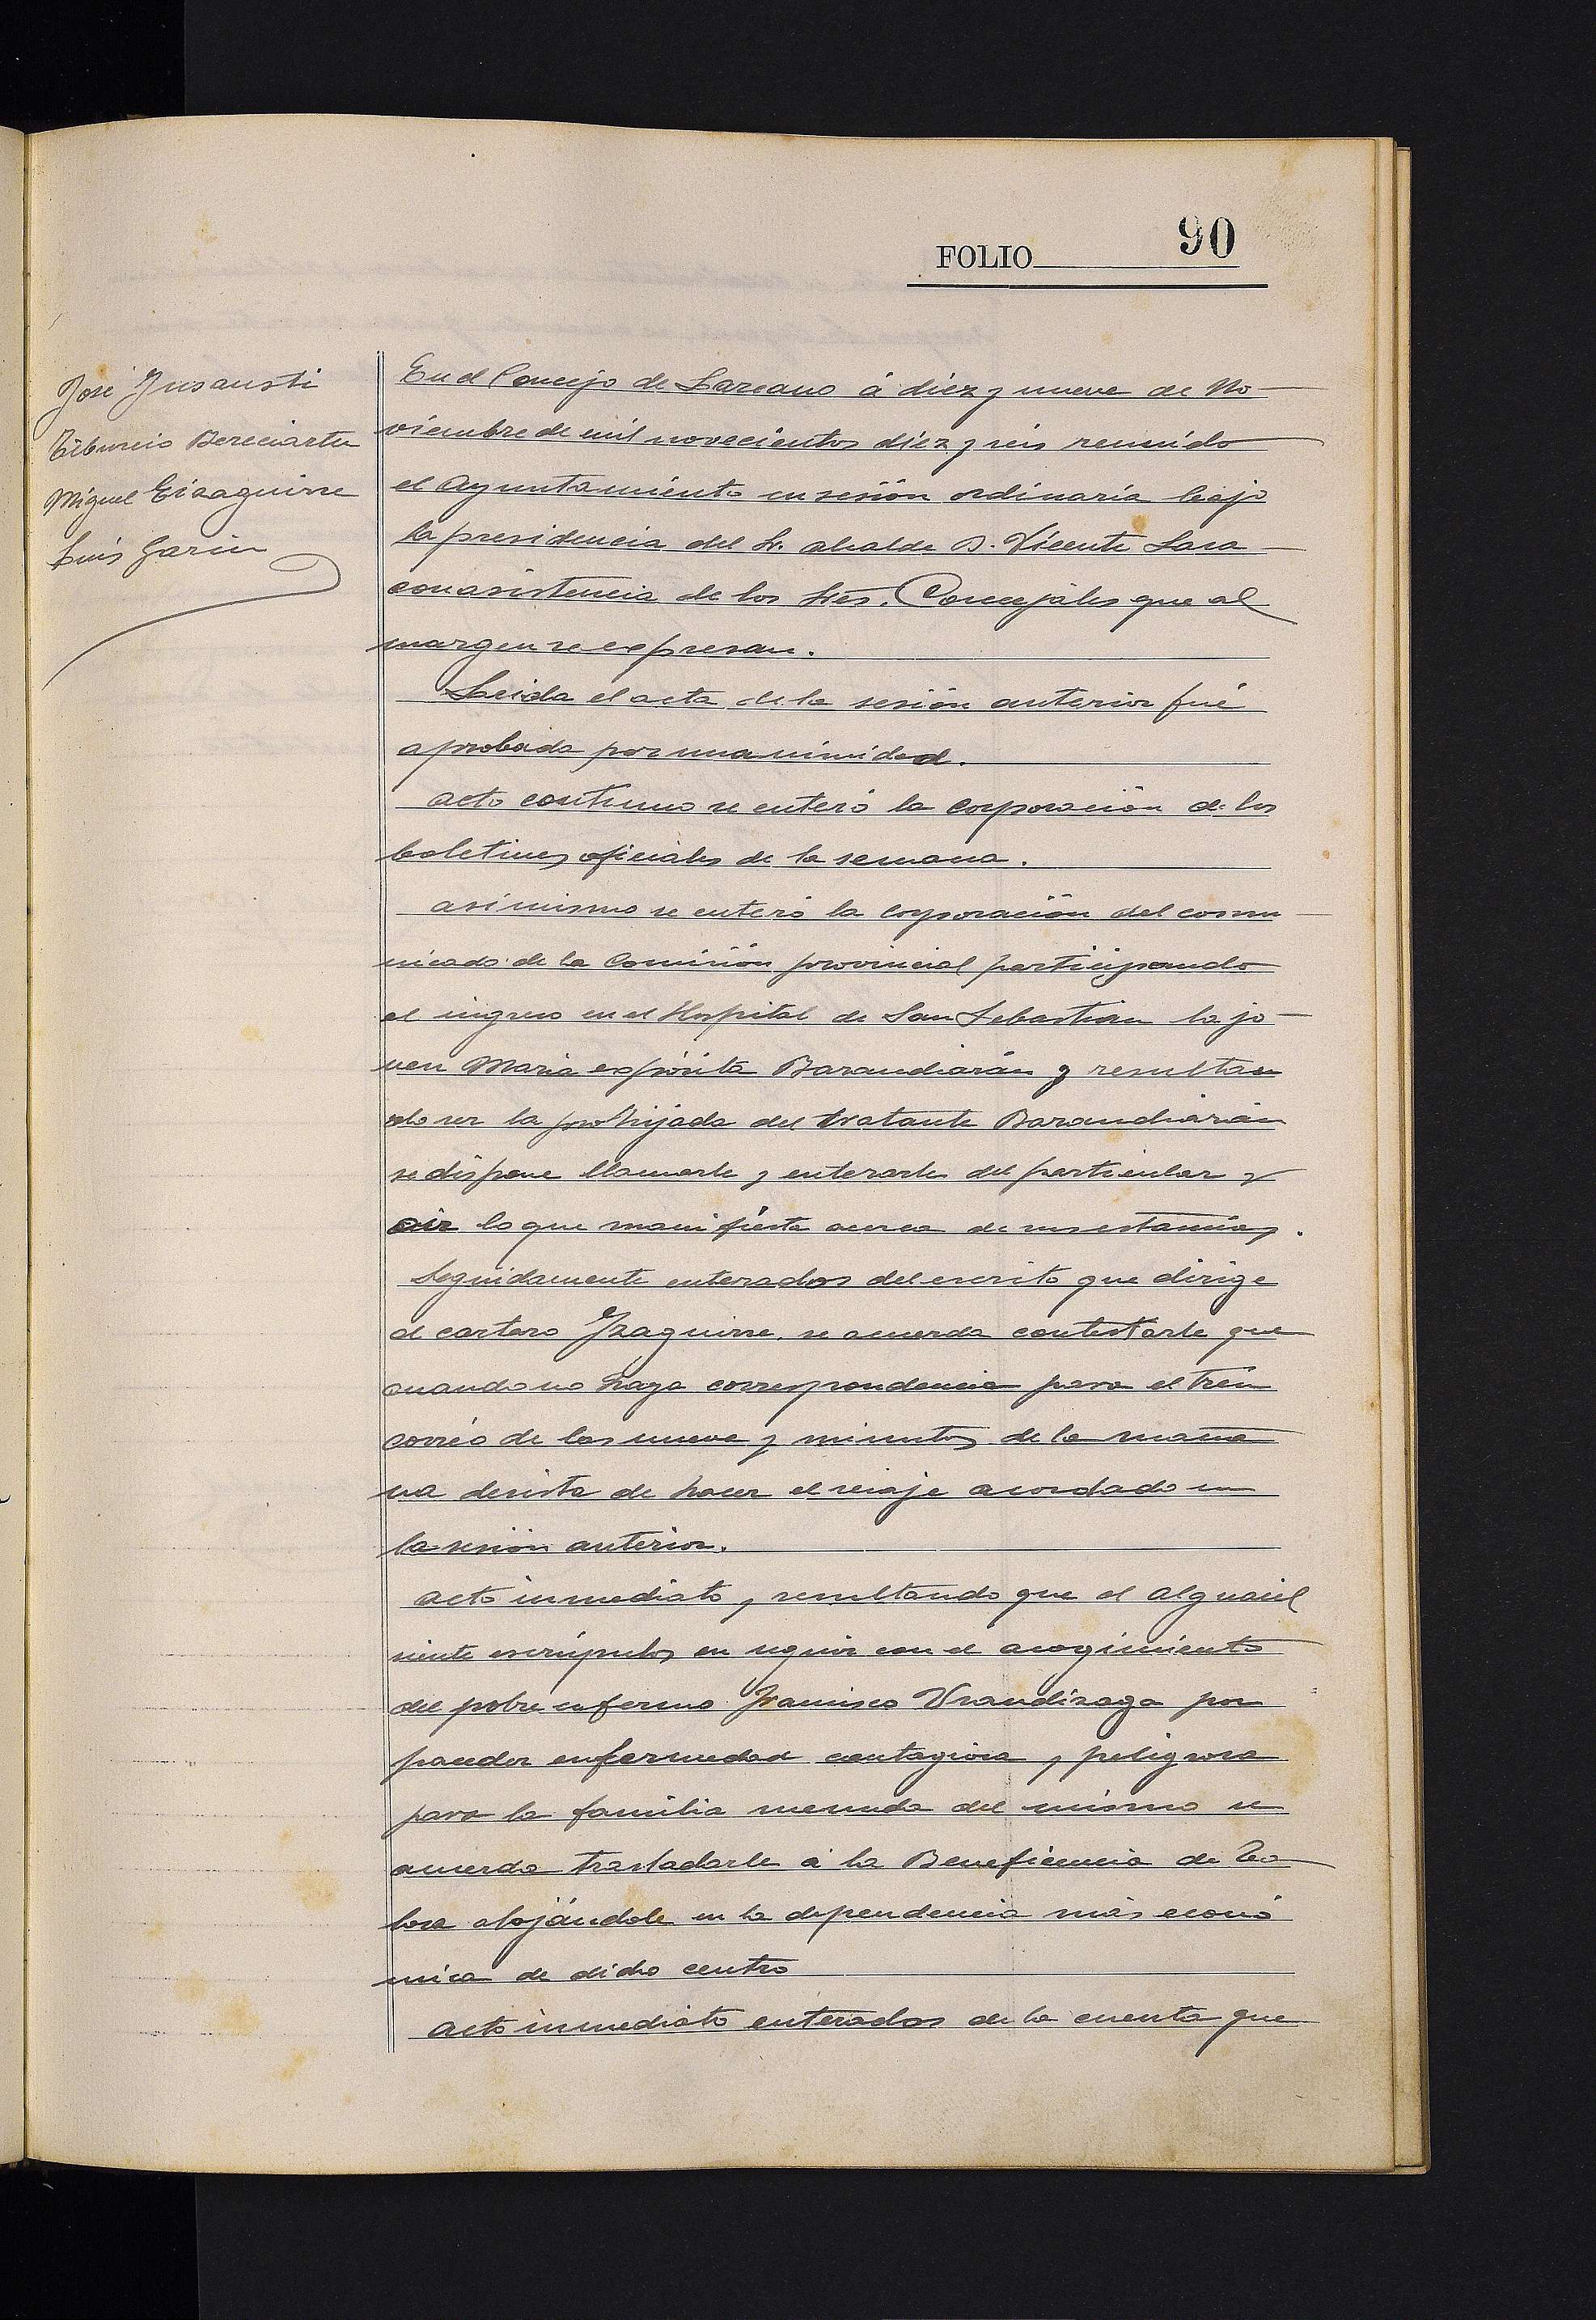 FOLIO 90
José Insausti
Tiburcio Bereciartu
Miguel Eizaguirre
Luis Garin
En el Concejo de Lazcano á diez y nueve de No-
viembre de mil novecientos diez y seis reunido
el Ayuntamiento en sesión ordinaria bajo
la presidencia del Sr. alcalde D. Vicente Lasa
con asistencia de los Sres. Concejales que al
margen se expresan.
Leida el acta de la sesión anterior fué
aprobada por unanimidad.
acto continuo se enteró la corporación de los
boletines oficiales de la semana.
asimismo se enteró la corporación del comu-
nicado de la Comisión provincial participando
el ingreso en el Hospital de San Sebastian la jo-
ven Maria expósita Barandiarán y resultan
do ser la prohijada del tratante Barandiarán
se dispone llamarle y enterarle del particular y
oir lo que manifiesta acerca de sus estancias.
Seguidamente enterados del escrito que dirige
el cartero Izaguirre, se acuerda contestarle que
cuando no haya correspondencia para el tren
correo de las nueve y minutos de la maña
na desista de hacer el viaje acordado en
la sesión anterior.
acto inmediato, resultando que el alguacil
siente escrúpulos en seguir con el acogimiento
del pobre enfermo Francisco Urandizaga por
padecer enfermedad contagiosa y peligrosa
para la familia menuda del mismo se
acuerda trasladarle á la Beneficencia de To-
losa alojándole en la dependencia más econó
mica de dicho centro
Acto inmediato enterados de la cuenta que